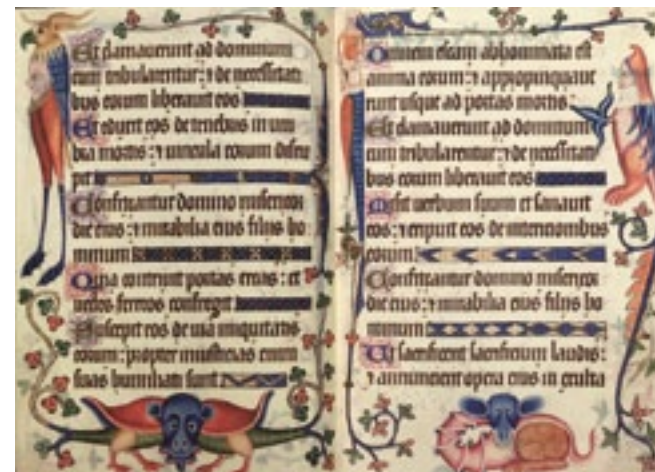 Et clamauerunt ad dominum
cum tribularentur: ⁊ de necessitati
bus eorum liberauit eos
Et eduxit eos de tenebris in um
bra mortis: ⁊ uincula eorum disru
pit
Confiteantur domino misericor
die eius: ⁊ mirabilia eius filijs ho
minum
Quia contriuit portas ereas: et
uectes ferreos confregit
Suscepit eos de uia iniquitatis
eorum: propter iniusticias enim
suas humiliati sunt
Omnem escam abhominata est
anima eorum: ⁊ appropinquaue
runt usque ad portas mortis:
Et clamauerunt ad dominum
cum tribularentur: ⁊ de necessitati
bus eorum liberauit eos
Misit uerbum suum et sanauit
eos: ⁊ eripuit eos de interitionibus
eorum
Confiteantur domino misericor
die eius: ⁊ mirabilia eius filijs ho
minum
Ut sacrificent sacrificium laudis:
⁊ annuncient opera eius in exulta